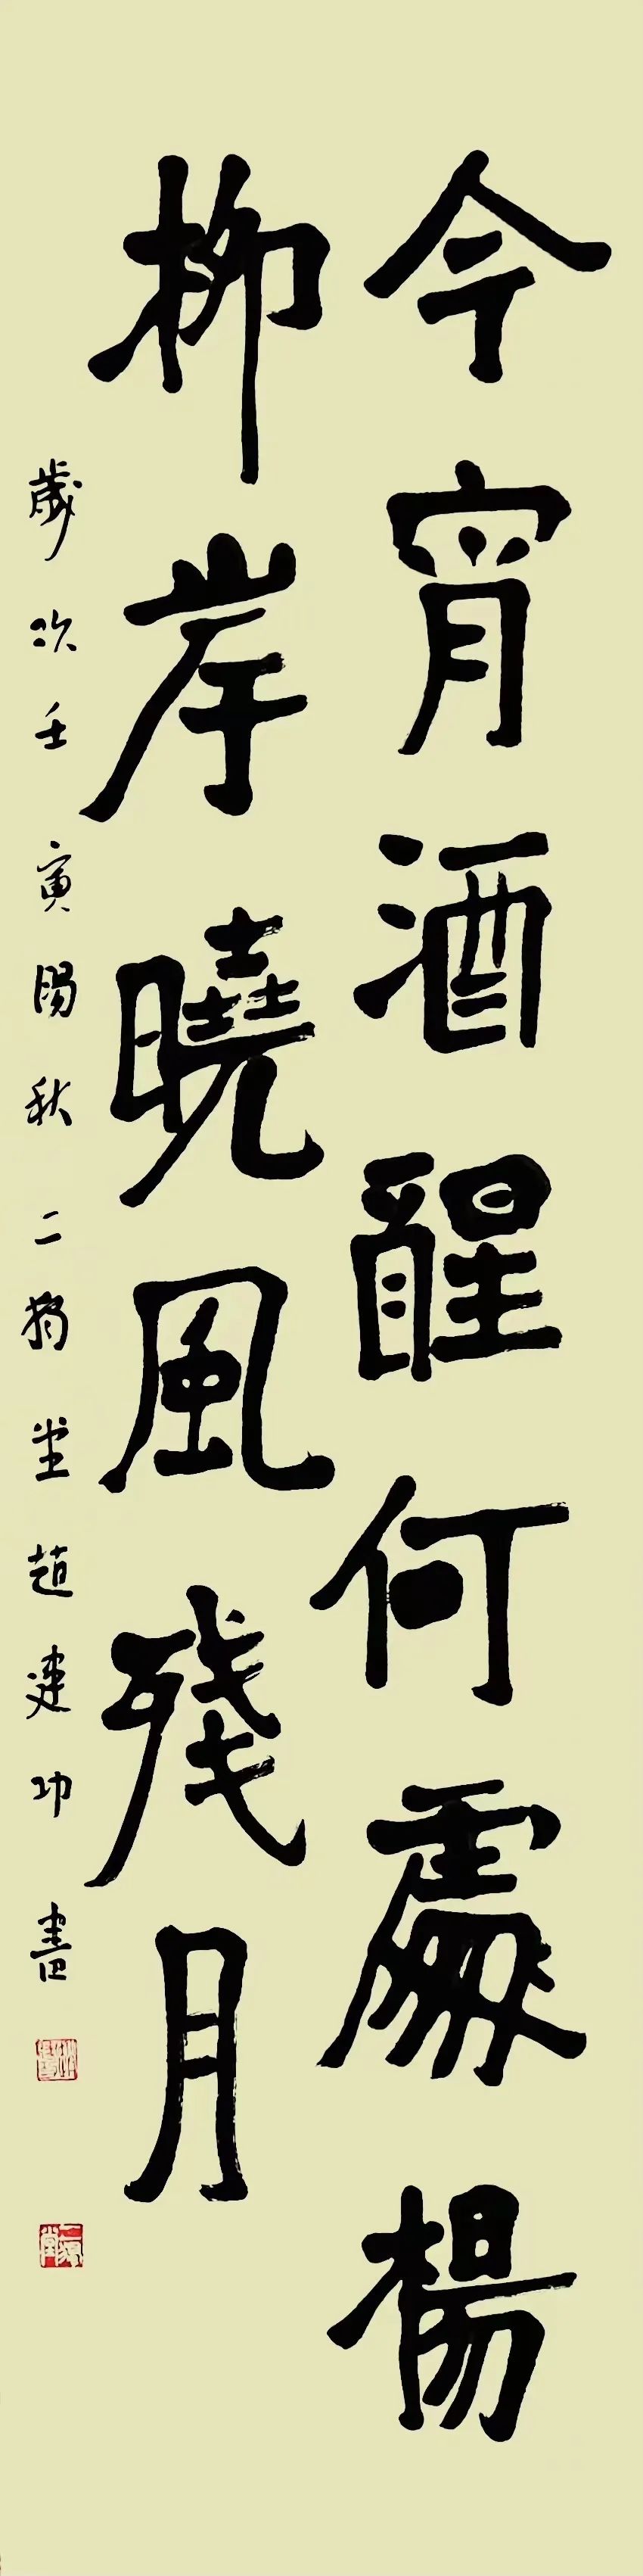 今宵酒醒何處楊
柳岸曉風殘月
歲次壬寅陽秋二獨堂趙建功書